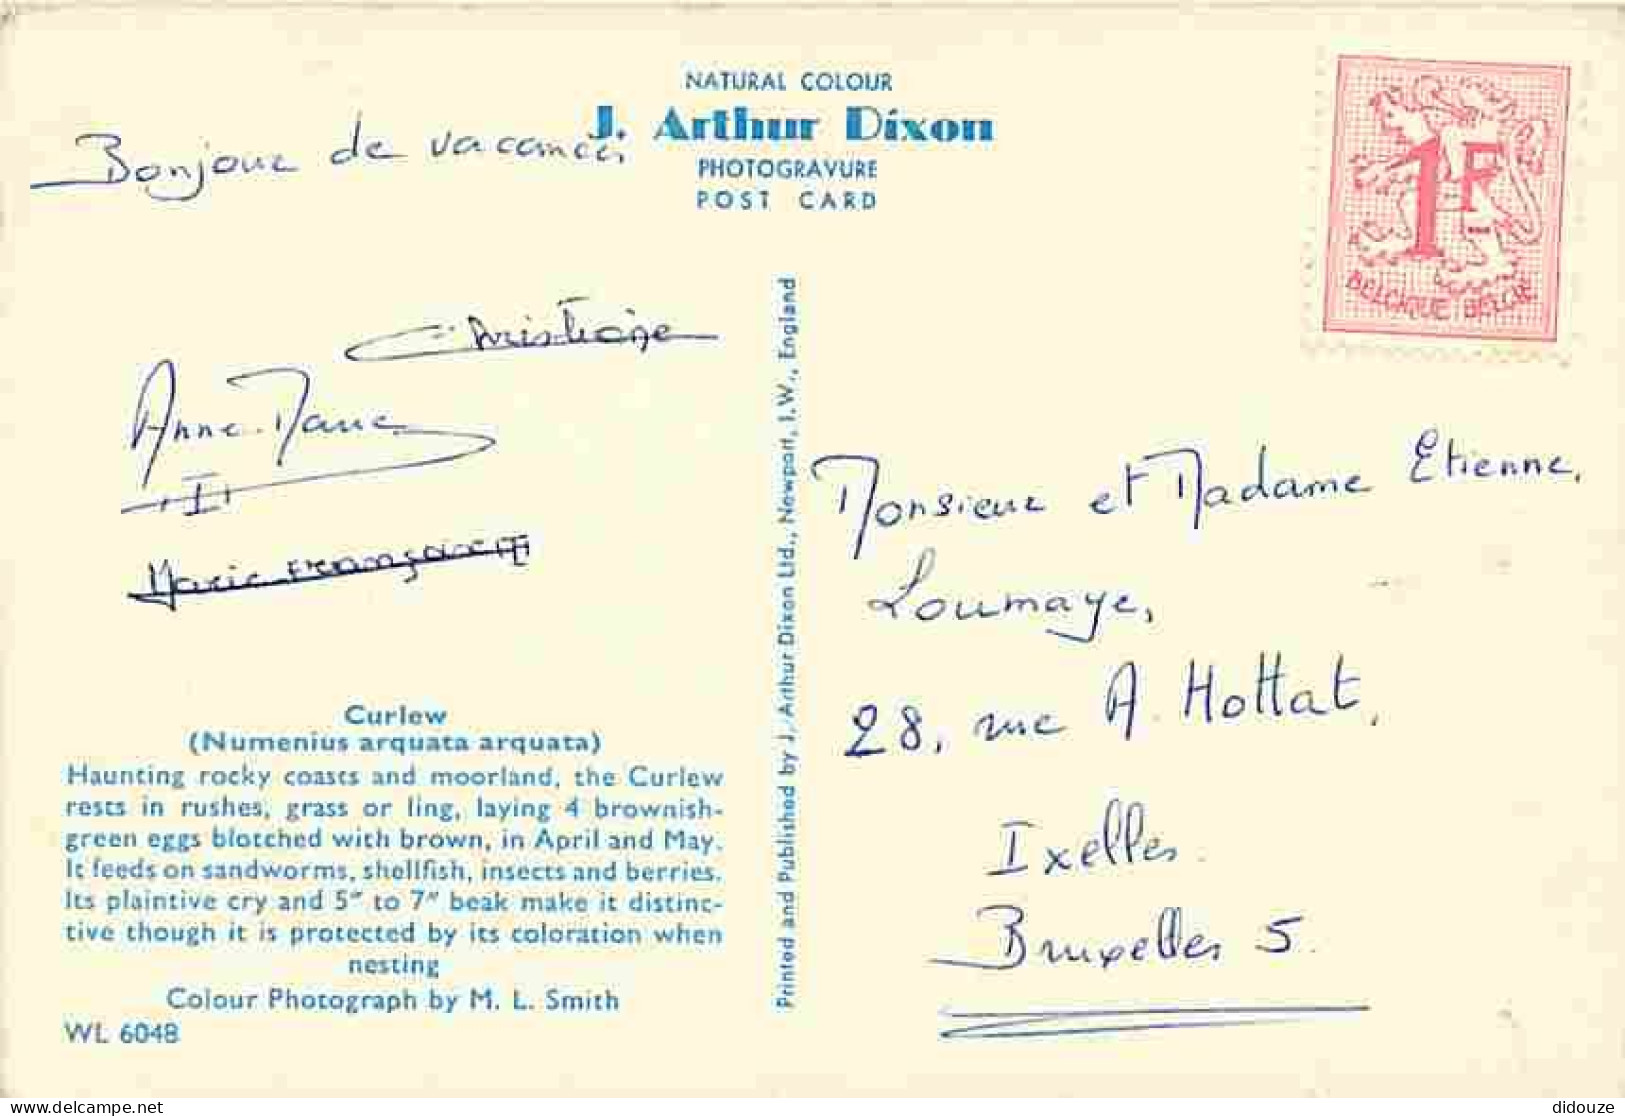 NATURAL COLOUR
J. Arthur Dixon
PHOTOGRAVURE
POST CARD
Bonjour de vacances
1F
BELGIQUE BELGIE
Christiane
Anne-Marie
Marie Françoise
Curlew
(Numenius arquata arquata)
Haunting rocky coasts and moorland, the Curlew
rests in rushes, grass or ling, laying 4 brownish-
green eggs blotched with brown, in April and May.
It feeds on sandworms, shellfish, insects and berries.
Its plaintive cry and 5″ to 7″ beak make it distinc-
tive though it is protected by its coloration when
nesting
Colour Photograph by M. L. Smith
WL 6048
Printed and Published by J. Arthur Dixon Ltd., Newport, I.W., England
Monsieur et Madame Etienne.
Loumaye,
28, rue A. Hottat,
Ixelles.
Bruxelles 5.
didouze